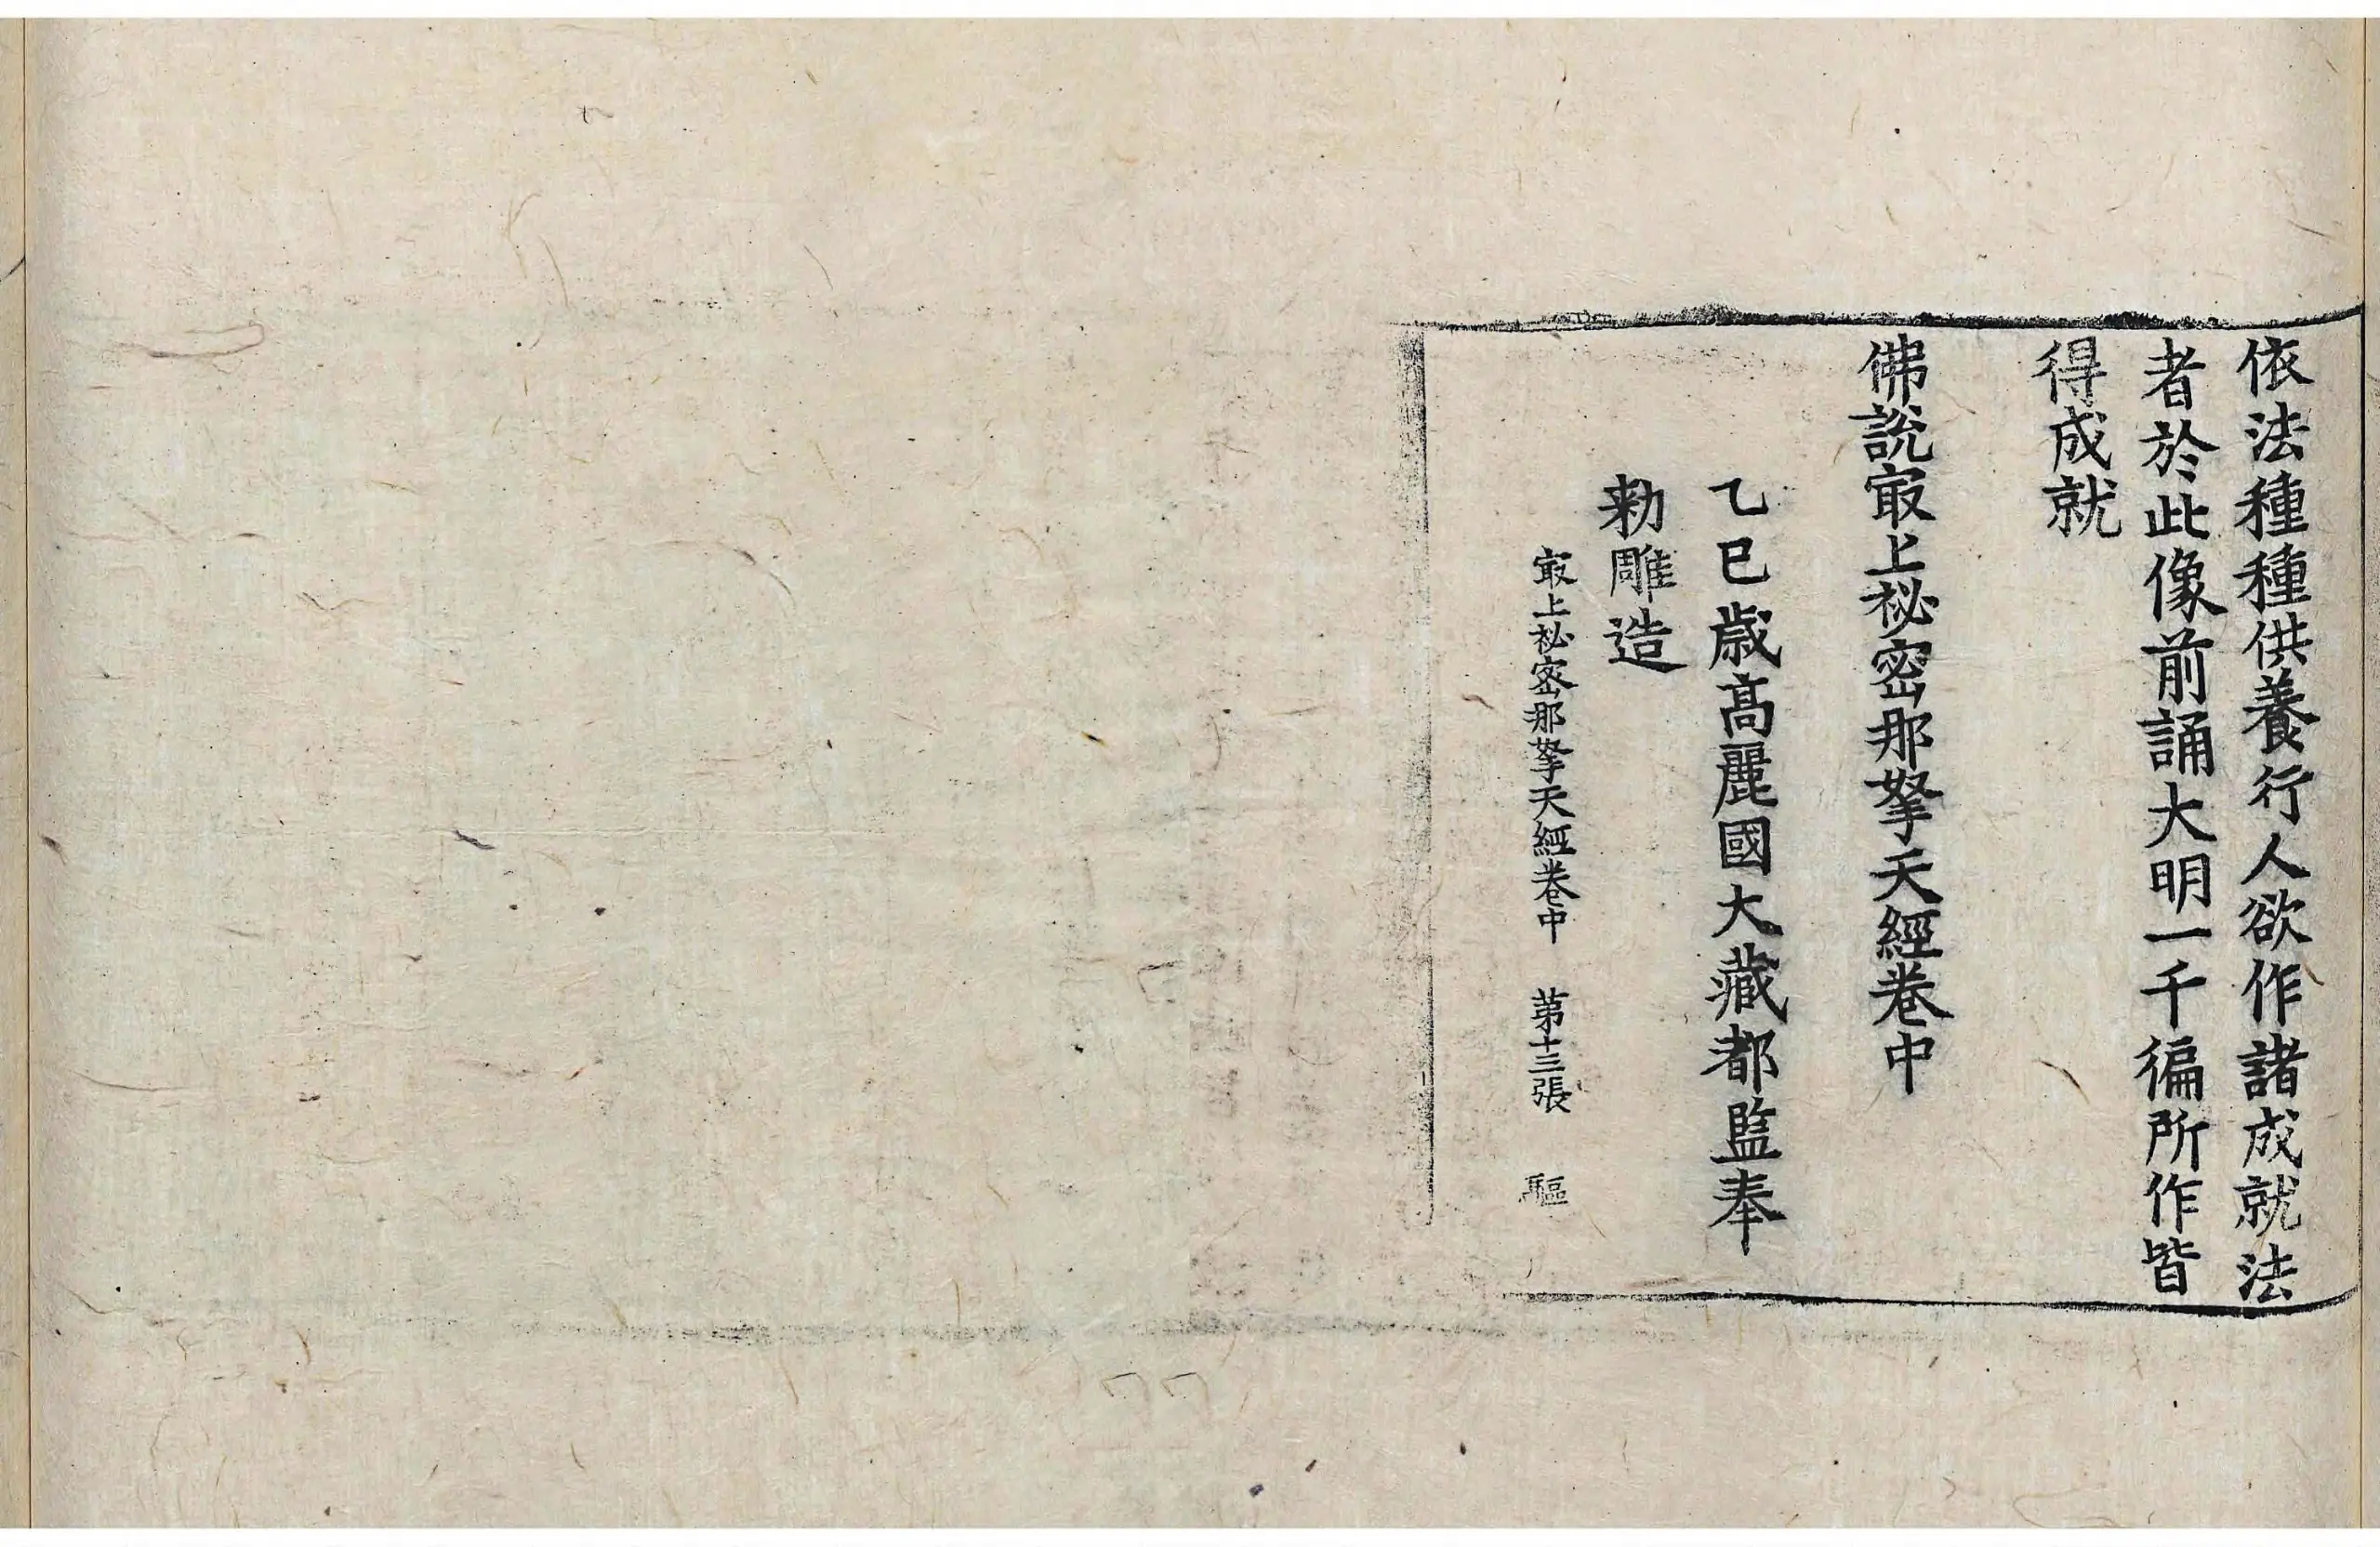 依法種種供養行人欲作諸成就法
者於此像前誦大明一千徧所作皆
得成就
佛說㝡上祕密那拏天經卷中
乙巳歲高麗國大藏都監奉
勑雕造
㝡上祕密那拏天經卷中 第十三張 驅